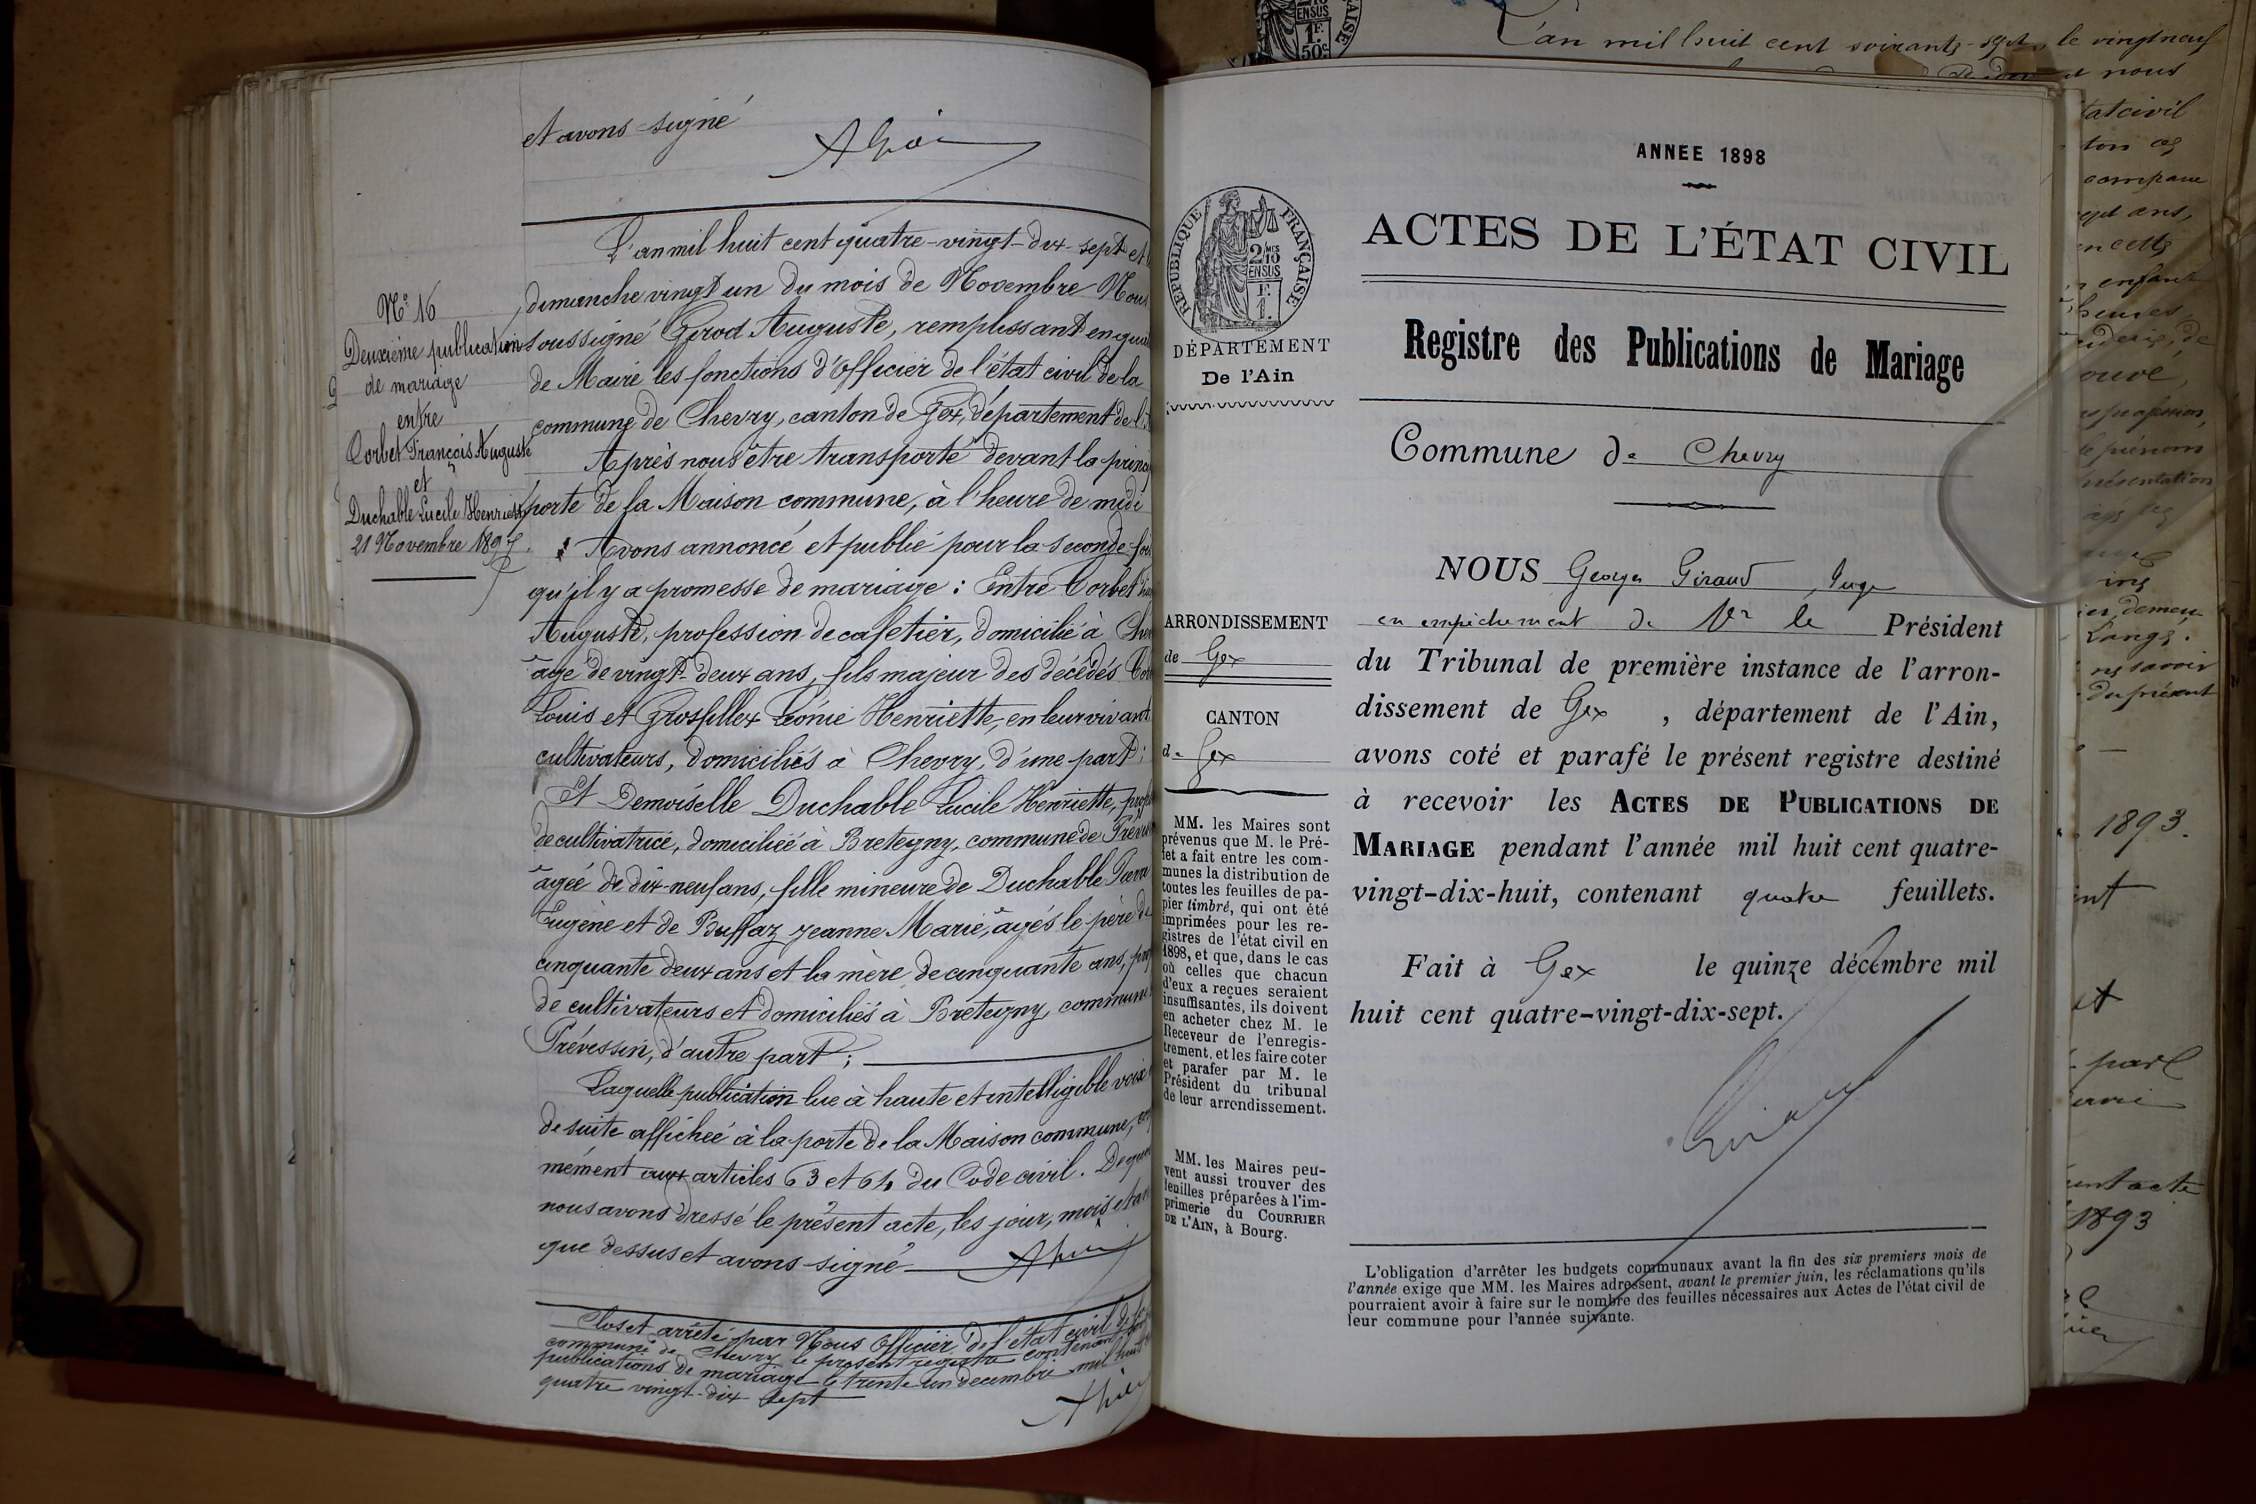 et avons signé
L'an mil huit cent quatre-vingt-dix-sept et
dimanche vingt un du mois de Novembre Nous
soussigné Girod Auguste, remplissant en
de Maire les fonctions d'Officier de l'état civil de la
commune de Chevry, canton de Gex, département de
Après nous être transporté devant la
porte de la Maison commune, à l'heure de midi
Avons annoncé et publié pour la seconde
qu'il y a promesse de mariage : Entre Corbet
Auguste, profession de cafetier, domicilié à
âgé de vingt-deux ans, fils majeur des décédés
Louis et Grosfillex Léonie Henriette, en leur vivant
cultivateurs, domiciliés à Chevry, d'une part ;
Et Demoiselle Duchable Lucile Henriette,
de cultivatrice, domiciliée à Bretegny, commune de
âgée de dix-neuf ans, fille mineure de Duchable
Eugène et de Buffaz Jeanne Marie, âgés le père de
cinquante deux ans et la mère de cinquante ans,
de cultivateurs et domiciliés à Bretegny, commune
Prévessin, d'autre part ;
Laquelle publication lue à haute et intelligible voix
de suite affichée à la porte de la Maison commune,
mément aux articles 63 et 64 du Code civil. De
nous avons dressé le présent acte, les jour, mois et an
que dessus et avons signé
Clos et arrêté par Nous Officier de l'état civil de la
commune de Chevry le présent registre contenant
publications de mariage le trente un decembre mil huit
quatre vingt-dix sept
N° 16
Deuxième publication
de mariage
entre
Corbet François Auguste
et
Duchable Lucile Henriette
21 Novembre 1897.
ANNEE 1898
ACTES DE L'ÉTAT CIVIL
RÉPUBLIQUE FRANÇAISE
2/10
EN SUS
1 F.
DÉPARTEMENT
De l'Ain
Registre des Publications de Mariage
Commune de Chevry
NOUS Georges Giraud, Juge
en empêchement de Mr le Président
du Tribunal de première instance de l'arron-
dissement de Gex, département de l'Ain,
avons coté et parafé le présent registre destiné
à recevoir les ACTES DE PUBLICATIONS DE
MARIAGE pendant l'année mil huit cent quatre-
vingt-dix-huit, contenant quatre feuillets.
Fait à Gex le quinze décembre mil
huit cent quatre-vingt-dix-sept.
ARRONDISSEMENT
de Gex
CANTON
de Gex
MM. les Maires sont
prévenus que M. le Pré-
fet a fait entre les com-
munes la distribution de
toutes les feuilles de pa-
pier timbré, qui ont été
imprimées pour les re-
gistres de l'état civil en
1898, et que, dans le cas
où celles que chacun
d'eux a reçues seraient
insuffisantes, ils doivent
en acheter chez M. le
Receveur de l'enregis-
trement, et les faire coter
et parafer par M. le
Président du tribunal
de leur arrondissement.
MM. les Maires peu-
vent aussi trouver des
feuilles préparées à l'im-
primerie du COURRIER
DE L'AIN, à Bourg.
L'obligation d'arrêter les budgets communaux avant la fin des six premiers mois de
l'année exige que MM. les Maires adressent, avant le premier juin, les réclamations qu'ils
pourraient avoir à faire sur le nombre des feuilles nécessaires aux Actes de l'état civil de
leur commune pour l'année suivante.
L'an mil huit cent soixante-sept, le vingt neuf
nous
1893.
1893